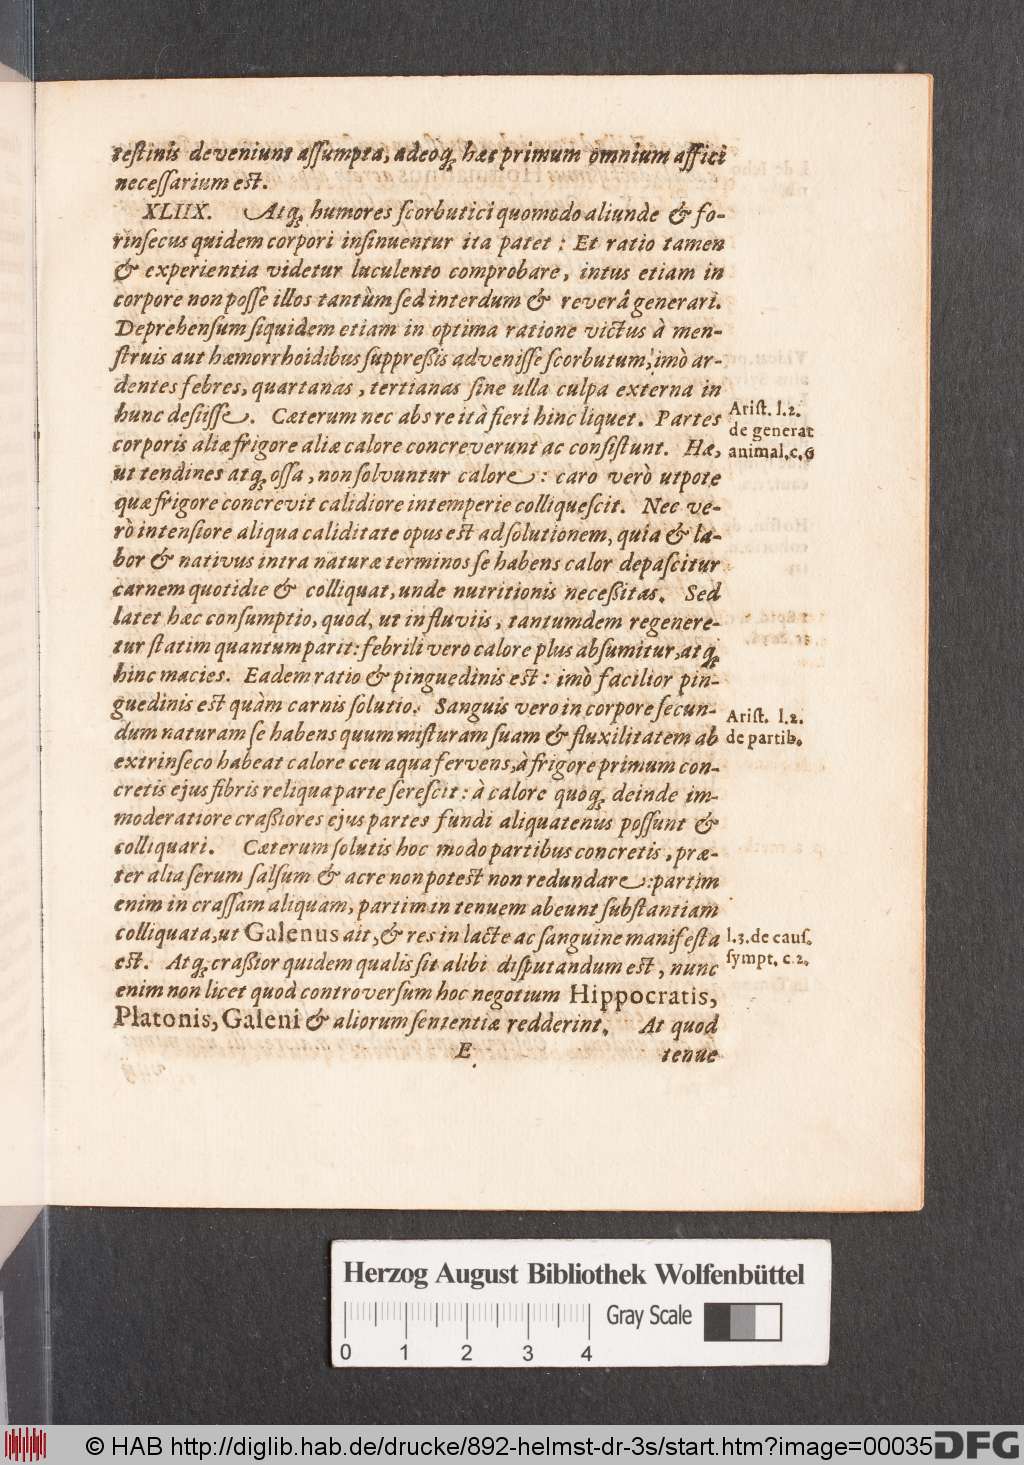 testinis deveniunt assumpta, adeoq; hæc primum omnium affici
necessarium est.
XLIIX. Atq; humores scorbutici quomodo aliunde & fo-
rinsecus quidem corpori insinuentur ita patet: Et ratio tamen
& experientia videtur luculento comprobare, intus etiam in
corpore non posse illos tantùm sed interdum & reverâ generari.
Deprehensum siquidem etiam in optima ratione victus à men-
struis aut hæmorrhoidibus suppressis advenisse scorbutum, imò ar-
dentes febres, quartanas, tertianas sine ulla culpa externa in
hunc desiisse. Cæterum nec abs re ità fieri hinc liquet. Partes
Arist. l.2.
de generat
animal. c. 6
corporis aliæ frigore aliæ calore concreverunt ac consistunt. Hæ,
ut tendines atq; ossa, non solvuntur calore: caro verò utpote
quæ frigore concrevit calidiore intemperie colliquescit. Nec ve-
rò intensiore aliqua caliditate opus est ad solutionem, quia & la-
bor & nativus intra naturæ terminos se habens calor depascitur
carnem quotidie & colliquat, unde nutritionis necessitas. Sed
latet hæc consumptio, quod, ut in fluviis, tantumdem regenere-
tur statim quantum parit: febrili vero calore plus absumitur, atq;
hinc macies. Eadem ratio & pinguedinis est: imò facilior pin-
guedinis est quàm carnis solutio. Sanguis vero in corpore secun-
Arist. l.2.
de partib.
dum naturam se habens quum misturam suam & fluxilitatem ab
extrinseco habeat calore ceu aqua fervens, à frigore primum con-
cretis ejus fibris reliqua parte serescit: à calore quoq; deinde im-
moderatiore crassiores ejus partes fundi aliquatenus possunt &
colliquari. Cæterum solutis hoc modo partibus concretis, præ-
ter alia serum salsum & acre non potest non redundare: partim
enim in crassam aliquam, partim in tenuem abeunt substantiam
colliquata, ut Galenus ait, & res in lacte ac sanguine manifesta
l.3. de caus.
sympt. c. 2.
est. Atq; crassior quidem qualis sit alibi disputandum est, nunc
enim non licet quod controversum hoc negotium Hippocratis,
Platonis, Galeni & aliorum sententiæ redderint. At quod
E
tenue
Herzog August Bibliothek Wolfenbüttel
Gray Scale
0 1 2 3 4
© HAB http://diglib.hab.de/drucke/892-helmst-dr-3s/start.htm?image=00035
DFG